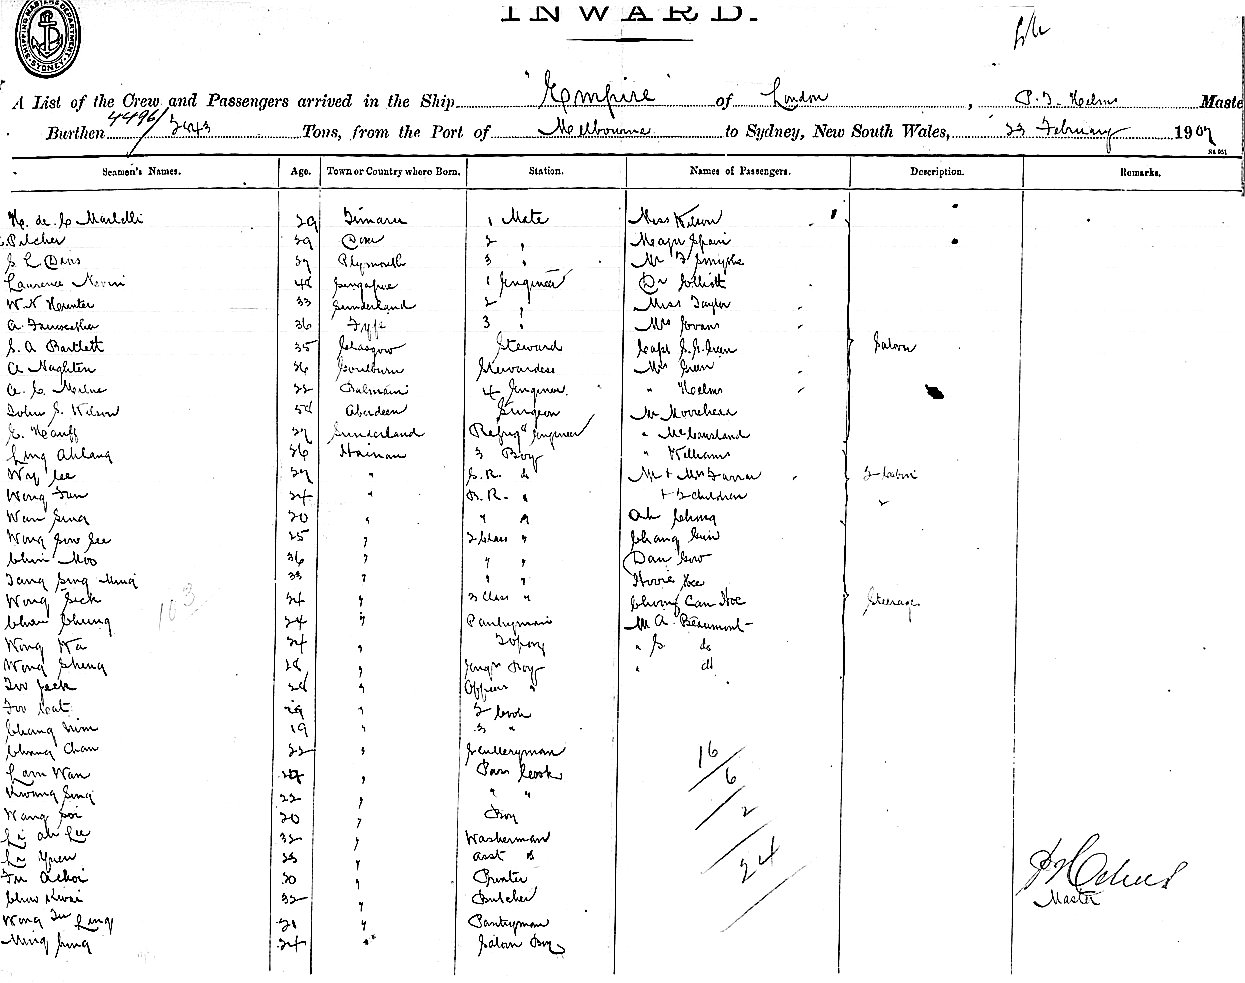 INWARD.
SHIPPING MASTERS DEPARTMENT SYDNEY
A List of the Crew and Passengers arrived in the Ship "Empire" of London, P. T. Helms Maste
Burthen 4496/2843 Tons, from the Port of Melbourne to Sydney, New South Wales, 23 February 1907
Seamen's Names. Age. Town or Country where Born. Station. Names of Passengers. Description. Remarks.
29 Timaru 1 Mate Miss Wilson
Pilcher 39 2 " Major Spain
37 Plymouth 3 " Mr Smythe
Laurence Nevin 48 Singapore 1 Engineer Dr
W. N. Hunter 33 Sunderland 2 " Miss Taylor
A. 36 Fyfe 3 " Mrs Evans
S. A. Bartlett 35 Glasgow Steward Capt Green Saloon
A. Naghten 36 Goulburn Stewardess Mrs Green
A. C. Milne 22 Balmain 4 Engineer " Helms
John S. Wilson 54 Aberdeen Surgeon Mr Moorhead
E. Hauff 27 Sunderland Refrigd Engineer " McCausland
Ling Ahlang 36 Hainan 3 Boy " Williams
Way Lee 27 " S.R. do Mr + Mrs Farrar 2 Cabin
Wong Fun 24 " B.R. " + 2 children "
Wan Sing 20 " " " Ah Chong
Wong Sow See 25 " 2 Class " Chang Sun
Chin Moo 36 " " " Dan Gow
Tang Sing Ming 33 " " " Howie Kee
Wong Sick 24 " 3 Class " Chong Can Hoe Steerage
103
Chan Chung 24 " Pantryman M A. Beaumont
Wong Wa 24 " Topboy " S. do
Wong Sheng 28 " Engrs Boy " do
Foo Jack 28 " Officers "
Foo Cat 19 " 2 Cook
Chang Nim 19 " 3 "
Chang Chan 22 " Sculleryman
Lam Wan 24 " Pan Cook
Kwang Sing 22 " " "
Wang Soi 20 " Boy
Li Ah Lu 32 " Washerman
Li Yuen 23 " Asst do
Fu Achoi 30 " Printer
Chu Kwai 32 " Butcher
Wong Su Ling 21 " Pantryman
Ming Sing 24 " Saloon Boy
16/6/2/24
Helms
Master